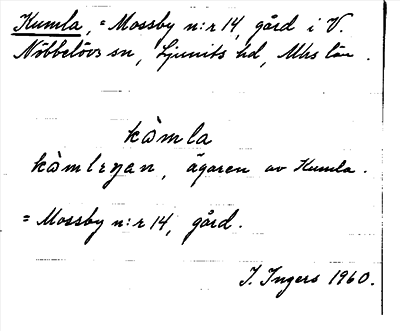 Kumla, = Mossby n:r 14, gård i V.
Nöbbelövs sn, Ljunits hd, Mhs län.
kàmla
kàmlryan, ägaren av Kumla.
= Mossby n:r 14, gård.
I. Ingers 1960.